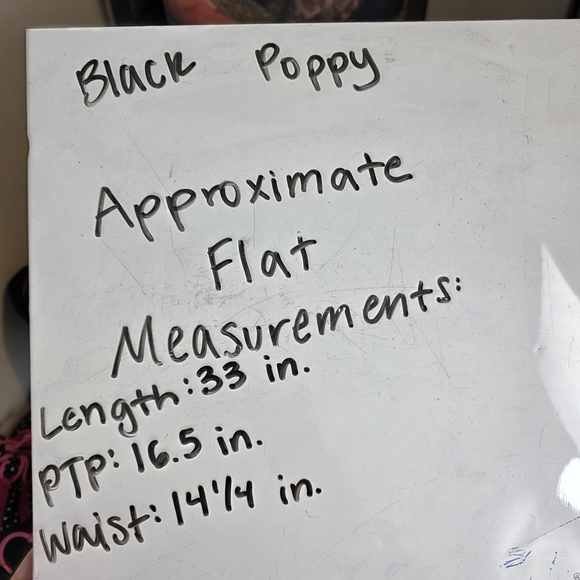 Black Poppy
Approximate
Flat
Measurements:
Length: 33 in.
PTP: 16.5 in.
Waist: 14 1/4 in.